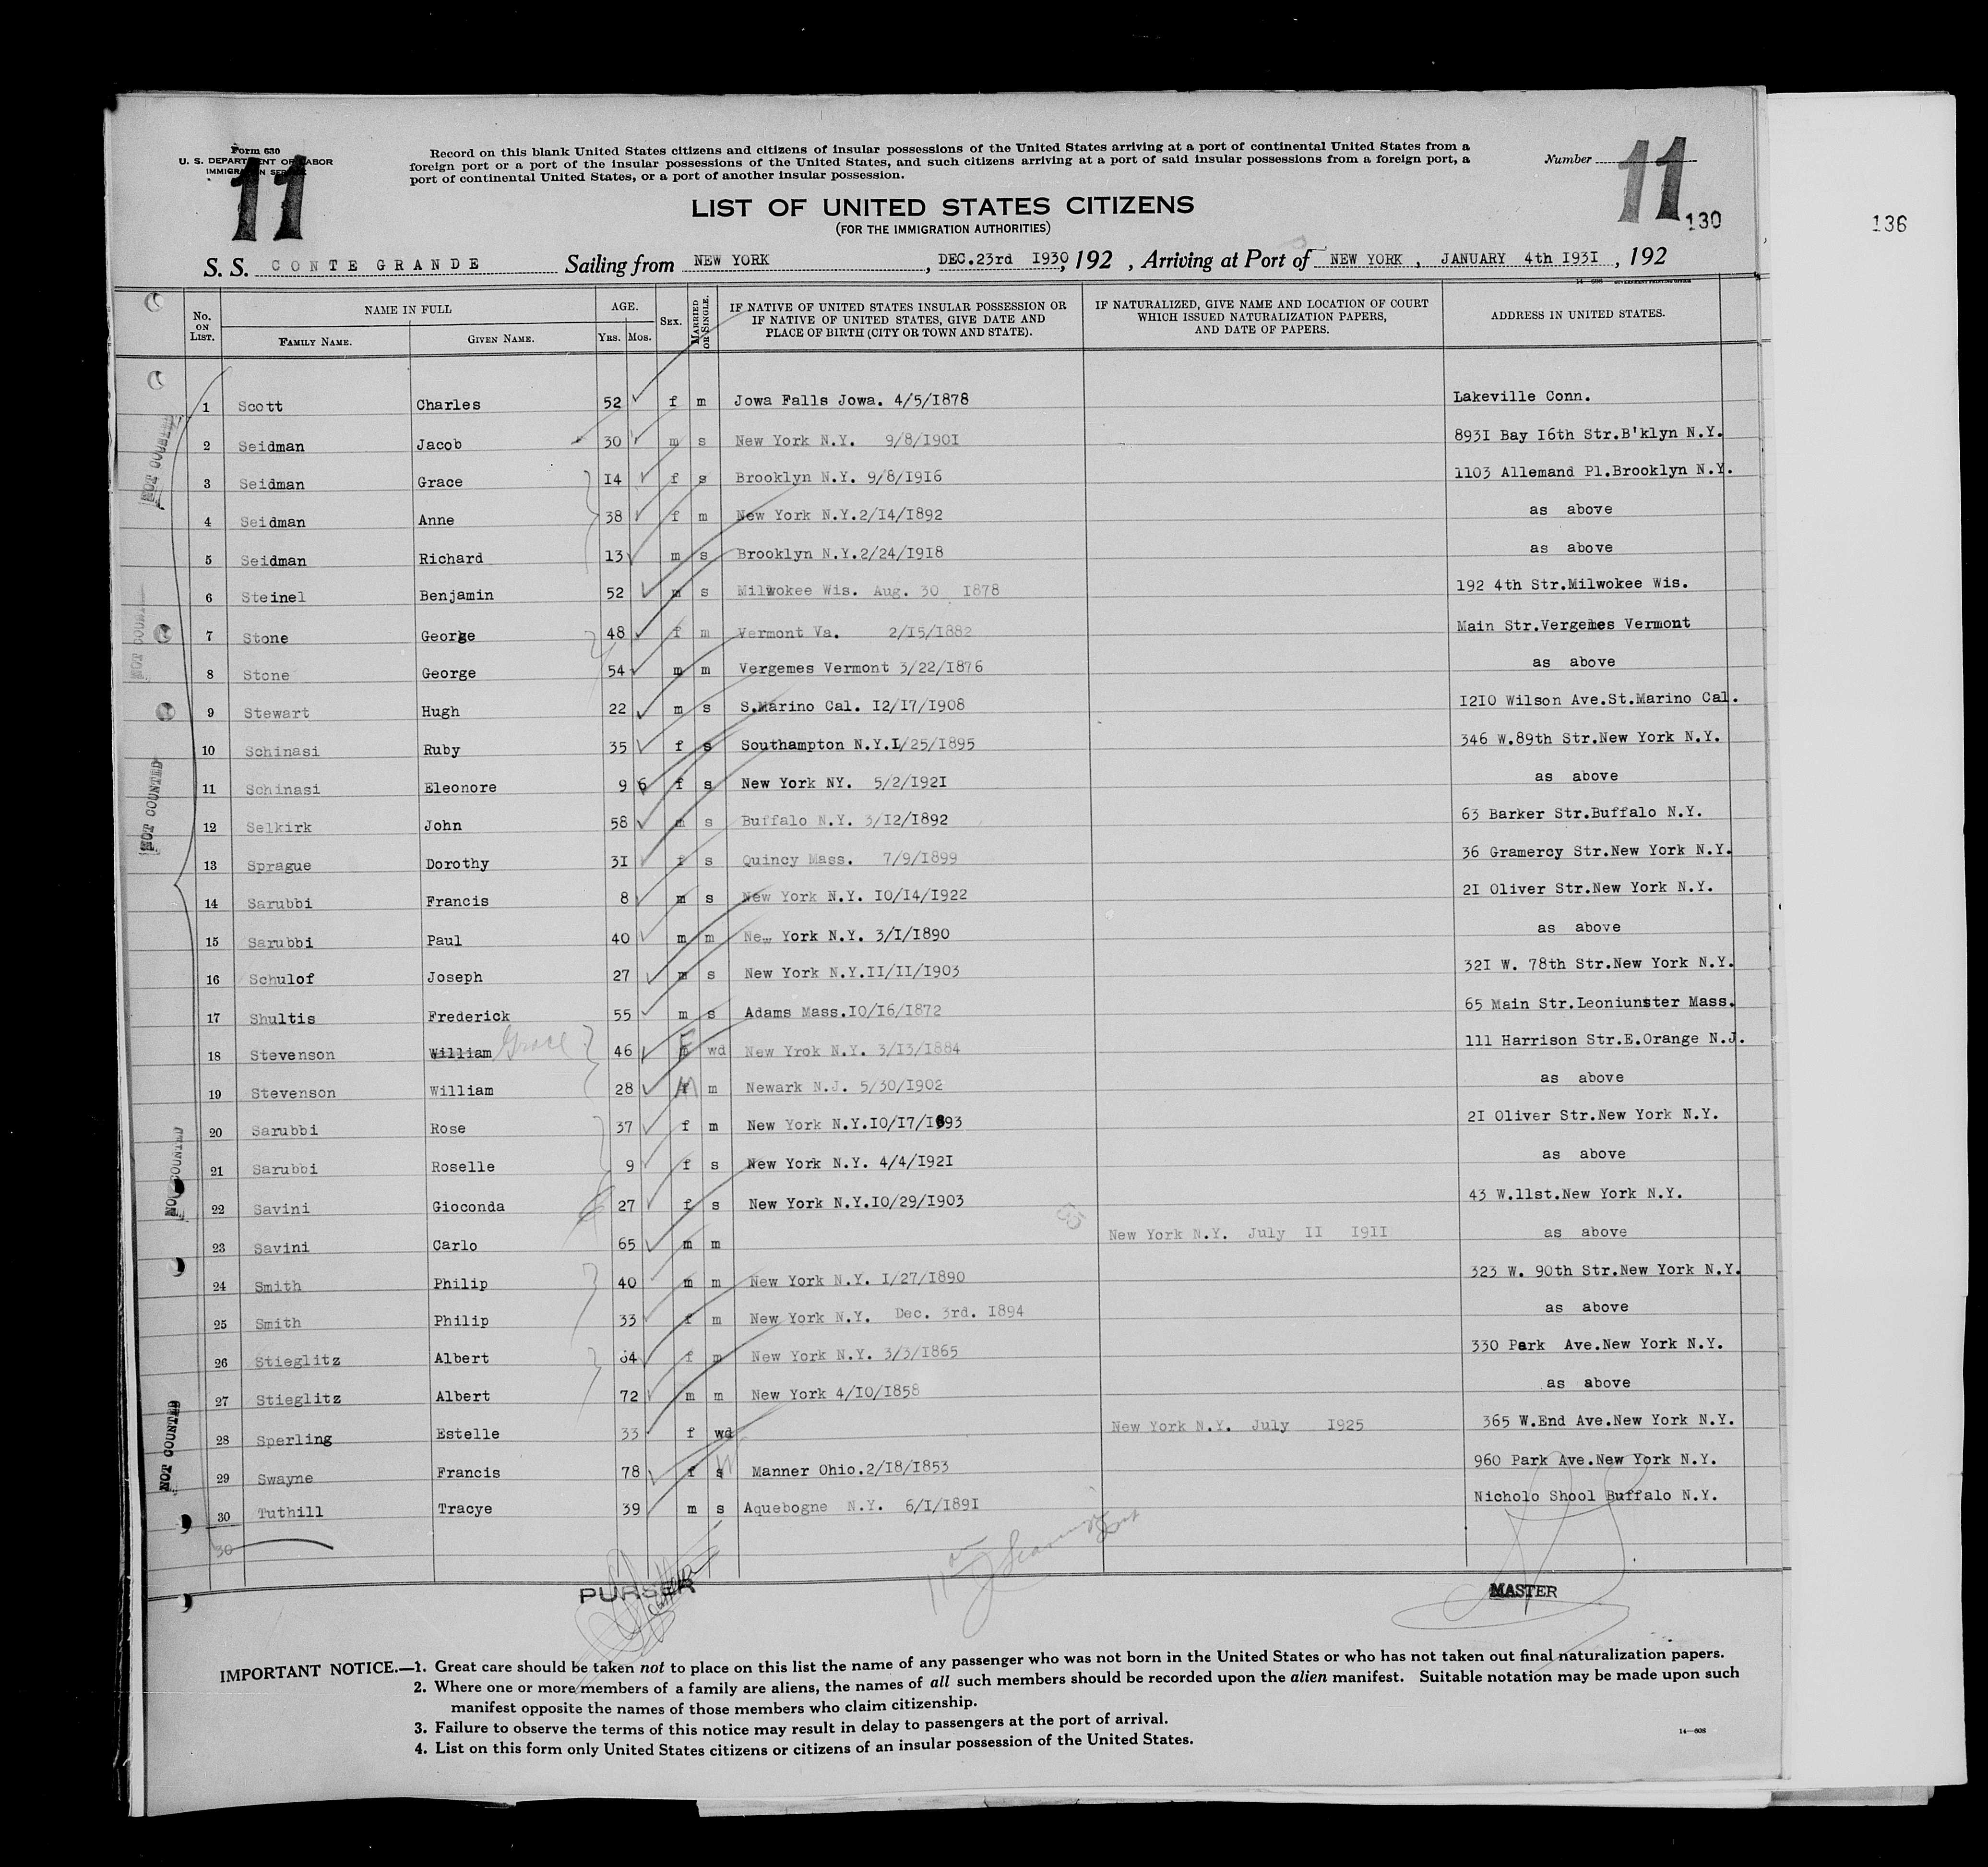 Form 630
U. S. DEPARTMENT OF LABOR
IMMIGRATION SERVICE
11
Record on this blank United States citizens and citizens of insular possessions of the United States arriving at a port of continental United States from a
foreign port or a port of the insular possessions of the United States, and such citizens arriving at a port of said insular possessions from a foreign port, a
port of continental United States, or a port of another insular possession.
Number 11
130
136
LIST OF UNITED STATES CITIZENS
(FOR THE IMMIGRATION AUTHORITIES)
S. S. CONTE GRANDE Sailing from NEW YORK, DEC.23rd 1930, 192 , Arriving at Port of NEW YORK, JANUARY 4th I93I, 192
14—608 GOVERNMENT PRINTING OFFICE
No. ON LIST. NAME IN FULL FAMILY NAME. GIVEN NAME. AGE. YRS. MOS. SEX. MARRIED OR SINGLE. IF NATIVE OF UNITED STATES INSULAR POSSESSION OR IF NATIVE OF UNITED STATES, GIVE DATE AND PLACE OF BIRTH (CITY OR TOWN AND STATE). IF NATURALIZED, GIVE NAME AND LOCATION OF COURT WHICH ISSUED NATURALIZATION PAPERS, AND DATE OF PAPERS. ADDRESS IN UNITED STATES.
1 Scott Charles 52 f m Jowa Falls Jowa. 4/5/I878 Lakeville Conn.
2 Seidman Jacob 30 m s New York N.Y. 9/8/I90I 893I Bay I6th Str.B'klyn N.Y.
3 Seidman Grace I4 f s Brooklyn N.Y. 9/8/I9I6 1103 Allemand Pl.Brooklyn N.Y.
4 Seidman Anne 38 f m New York N.Y.2/I4/I892 as above
5 Seidman Richard I3 m s Brooklyn N.Y.2/24/I9I8 as above
6 Steinel Benjamin 52 m s Milwokee Wis. Aug. 30 I878 192 4th Str.Milwokee Wis.
7 Stone George 48 f m Vermont Va. 2/I5/I882 Main Str.Vergemes Vermont
8 Stone George 54 m m Vergemes Vermont 3/22/I876 as above
9 Stewart Hugh 22 m s S.Marino Cal. I2/I7/I908 I2I0 Wilson Ave.St.Marino Cal.
10 Schinasi Ruby 35 f s Southampton N.Y.I/25/I895 346 W.89th Str.New York N.Y.
11 Schinasi Eleonore 9 6 f s New York NY. 5/2/I92I as above
12 Selkirk John 58 m s Buffalo N.Y. 3/I2/I892 63 Barker Str.Buffalo N.Y.
13 Sprague Dorothy 3I f s Quincy Mass. 7/9/I899 36 Gramercy Str.New York N.Y.
14 Sarubbi Francis 8 m s New York N.Y. I0/I4/I922 2I Oliver Str.New York N.Y.
15 Sarubbi Paul 40 m m New York N.Y. 3/I/I890 as above
16 Schulof Joseph 27 m s New York N.Y.II/II/I903 32I W. 78th Str.New York N.Y.
17 Shultis Frederick 55 m s Adams Mass.I0/I6/I872 65 Main Str.Leoniunster Mass.
18 Stevenson William Grace 46 F wd New Yrok N.Y. 3/I3/I884 111 Harrison Str.E.Orange N.J.
19 Stevenson William 28 M m Newark N.J. 5/30/I902 as above
20 Sarubbi Rose 37 f m New York N.Y.I0/I7/I893 2I Oliver Str.New York N.Y.
21 Sarubbi Roselle 9 f s New York N.Y. 4/4/I92I as above
22 Savini Gioconda 27 f s New York N.Y.I0/29/I903 43 W.11st.New York N.Y.
23 Savini Carlo 65 m m New York N.Y. July II I9II as above
24 Smith Philip 40 m m New York N.Y. I/27/I890 323 W. 90th Str.New York N.Y.
25 Smith Philip 33 f m New York N.Y. Dec. 3rd. I894 as above
26 Stieglitz Albert 64 f m New York N.Y. 3/3/I865 330 Park Ave.New York N.Y.
27 Stieglitz Albert 72 m m New York 4/I0/I858 as above
28 Sperling Estelle 33 f wd New York N.Y. July I925 365 W.End Ave.New York N.Y.
29 Swayne Francis 78 f s Manner Ohio.2/I8/I853 960 Park Ave.New York N.Y.
30 Tuthill Tracye 39 m s Aquebogne N.Y. 6/I/I89I Nicholo Shool Buffalo N.Y.
30
NOT COUNTED
NOT COUNTED
NOT COUNTED
NOT COUNTED
NOT COUNTED
PURSER
MASTER
IMPORTANT NOTICE.—1. Great care should be taken not to place on this list the name of any passenger who was not born in the United States or who has not taken out final naturalization papers.
2. Where one or more members of a family are aliens, the names of all such members should be recorded upon the alien manifest. Suitable notation may be made upon such
manifest opposite the names of those members who claim citizenship.
3. Failure to observe the terms of this notice may result in delay to passengers at the port of arrival.
4. List on this form only United States citizens or citizens of an insular possession of the United States.
14—608